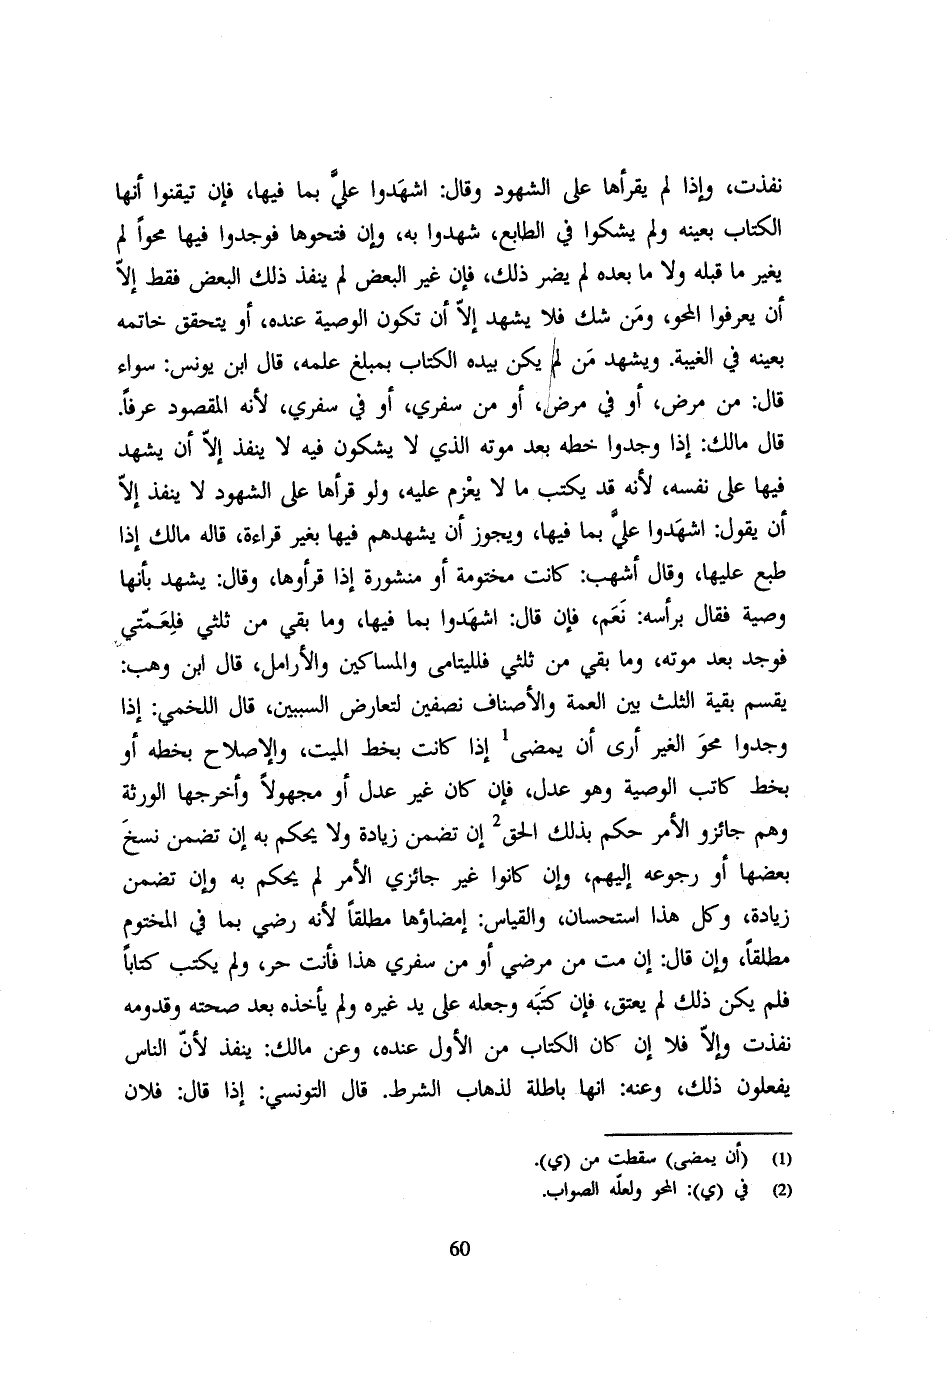 نفذت، وإذا لم يقرأها على الشهود وقال: اشهَدوا عليَّ بما فيها، فإن تيقنوا أنها
الكتاب بعينه ولم يشكوا في الطابع، شهدوا به، وإن فتحوها فوجدوا فيها محواً لم
يغير ما قبله ولا ما بعده لم يضر ذلك، فإن غير البعض لم ينفذ ذلك البعض فقط إلاّ
أن يعرفوا المحو، ومَن شك فلا يشهد إلاّ أن تكون الوصية عنده، أو يتحقق خاتمه
بعينه في الغيبة. ويشهد مَن لم يكن بيده الكتاب بمبلغ علمه، قال ابن يونس: سواء
قال: من مرض، أو في مرض، أو من سفري، أو في سفري، لأنه المقصود عرفاً.
قال مالك: إذا وجدوا خطه بعد موته الذي لا يشكون فيه لا ينفذ إلاّ أن يشهد
فيها على نفسه، لأنه قد يكتب ما لا يعْزم عليه، ولو قرأها على الشهود لا ينفذ إلاّ
أن يقول: اشهَدوا عليَّ بما فيها، ويجوز أن يشهدهم فيها بغير قراءة، قاله مالك إذا
طبع عليها، وقال أشهب: كانت مختومة أو منشورة إذا قرأوها، وقال: يشهد بأنها
وصية فقال برأسه: نَعَم، فإن قال: اشهَدوا بما فيها، وما بقي من ثلثي فلِعَمّتي
فوجد بعد موته، وما بقي من ثلثي فلليتامى والمساكين والأرامل، قال ابن وهب:
يقسم بقية الثلث بين العمة والأصناف نصفين لتعارض السببين، قال اللخمي: إذا
وجدوا محوَ الغير أرى أن يمضى1 إذا كانت بخط الميت، والإصلاح بخطه أو
بخط كاتب الوصية وهو عدل، فإن كان غير عدل أو مجهولاً وأخرجها الورثة
وهم جائزو الأمر حكم بذلك الحق2 إن تضمن زيادة ولا يحكم به إن تضمن نسخَ
بعضها أو رجوعه إليهم، وإن كانوا غير جائزي الأمر لم يحكم به وإن تضمن
زيادة، وكل هذا استحسان، والقياس: إمضاؤها مطلقاً لأنه رضي بما في المختوم
مطلقاً، وإن قال: إن مت من مرضي أو من سفري هذا فأنت حر، ولم يكتب كتاباً
فلم يكن ذلك لم يعتق، فإن كتَبَه وجعله على يد غيره ولم يأخذه بعد صحته وقدومه
نفذت وإلاّ فلا إن كان الكتاب من الأول عنده، وعن مالك: ينفذ لأنّ الناس
يفعلون ذلك، وعنه: انها باطلة لذهاب الشرط. قال التونسي: إذا قال: فلان
(1) (أن يمضى) سقطت من (ي).
(2) في (ي): المحو ولعلّه الصواب.
60